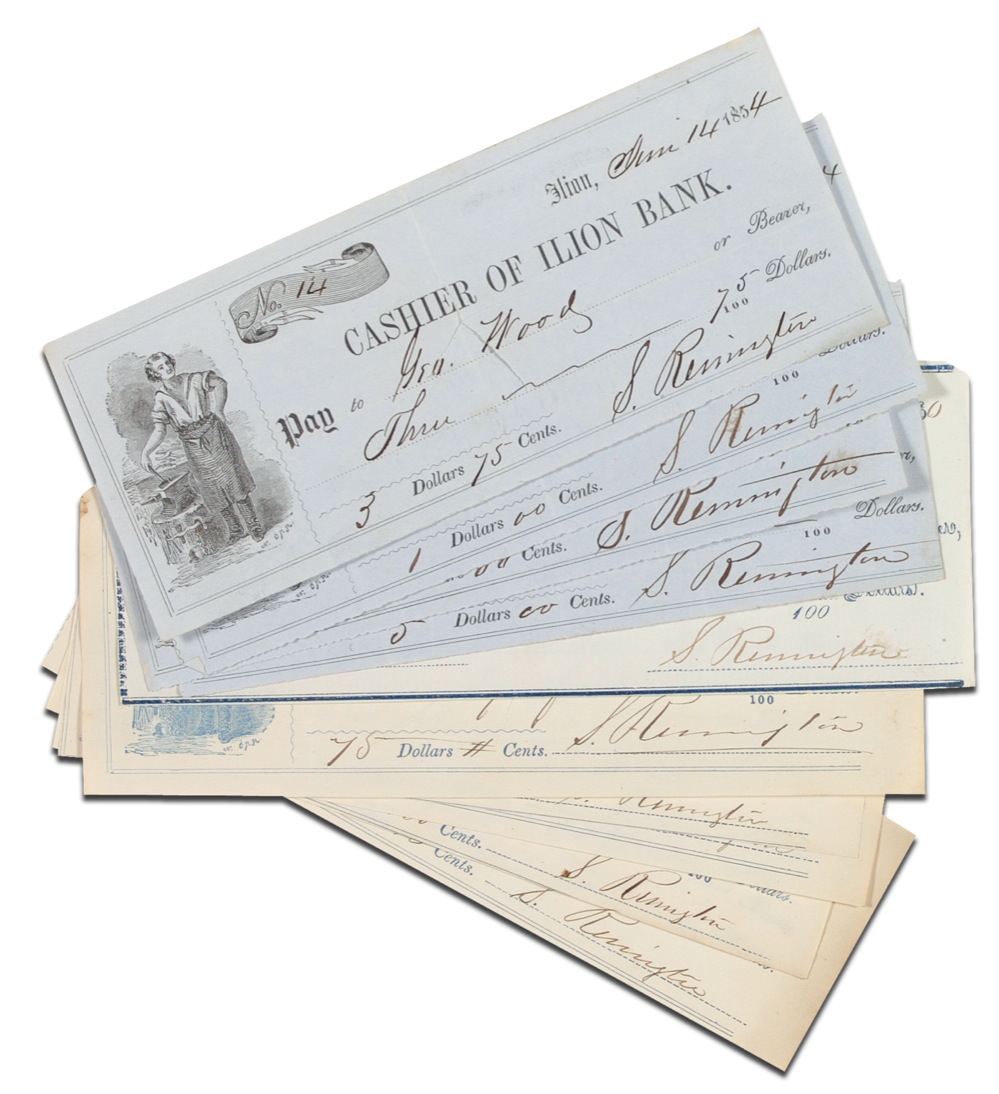 Ilion, Juni 14 1854
No. 14
CASHIER OF ILION BANK.
Pay to Geo. Wood or Bearer,
Three 75/100 Dollars.
3 Dollars 75 Cents. S. Remington
4
Dollars.
100
1 Dollars 00 Cents. S. Remington
00 Cents. S. Remington
Dollars.
100
5 Dollars 00 Cents. S. Remington
100
S. Remington
100
75 Dollars # Cents. S. Remington
S. Remington
Cents.
100
S. Remington
Cents.
S. Remington